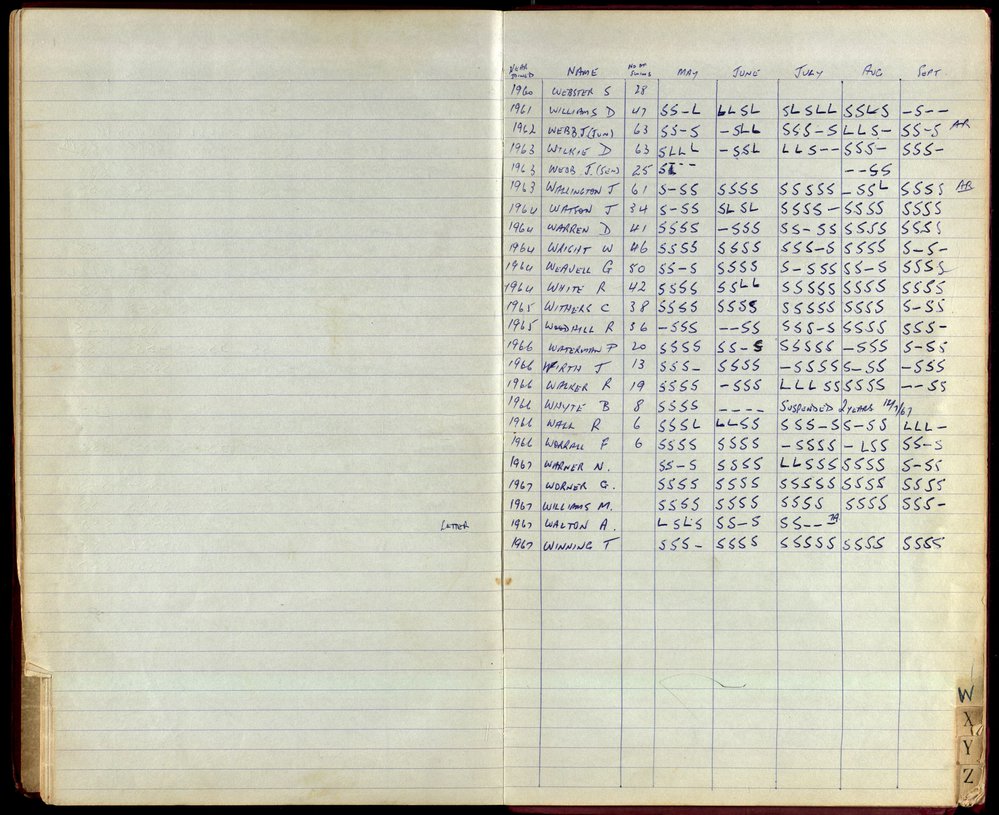 YEAR JOINED NAME NO OF SWIMS MAY JUNE JULY AUG SEPT.
1960 WEBSTER S 28
1961 WILLIAMS D 47 SS-L LLSL SLSLL SSLS -S--
1962 WEBB.J.(JUN) 63 SS-S -SLL SSS-S LLS- SS-S AR
1963 WILKIE D 63 SLLL -SSL LLS-- SSS- SSS-
1963 WEBB J.(SEN) 25 SL-- --SS
1963 WALLINGTON J 61 S-SS SSSS SSSSS -SSL SSSS AR
1964 WATSON J 34 S-SS SLSL SSSS- SSSS SSSS
1964 WARREN D 41 SSSS -SSS SS-SS SSSS SSSS
1964 WRIGHT W 46 SSSS SSSS SSS-S SSSS S-S-
1964 WEAVELL G 50 SS-S SSSS S-SSS SS-S SSSS
1964 WHITE R 42 SSSS SSLL SSSSS SSSS SSSS
1965 WITHERS C 38 SSSS SSSS SSSSS SSSS S-SS
1965 WOODHILL R 36 -SSS --SS SSS-S SSSS SSS-
1966 WATERMAN P 20 SSSS SS-S SSSSS -SSS S-SS
1966 WIRTH J 13 SSS- SSSS -SSSS S-SS -SSS
1966 WALKER R 19 SSSS -SSS LLLSS SSSS --SS
1966 WHYTE B 8 SSSS ---- SUSPENDED 2 YEARS 12/7/67
1966 WALL R 6 SSSL LLSS SSS-S S-SS LLL-
1966 WORRALL F 6 SSSS SSSS -SSSS -LSS SS-S
1967 WARNER N. SS-S SSSS LLSSS SSSS S-SS
1967 WORNER G. SSSS SSSS SSSSS SSSS SSSS
1967 WILLIAMS M. SSSS SSSS SSSS SSSS SSS-
LETTER 1967 WALTON A. LSLS SS-S SS--
1967 WINNING T SSS- SSSS SSSSS SSSS SSSS
W
X
Y
Z